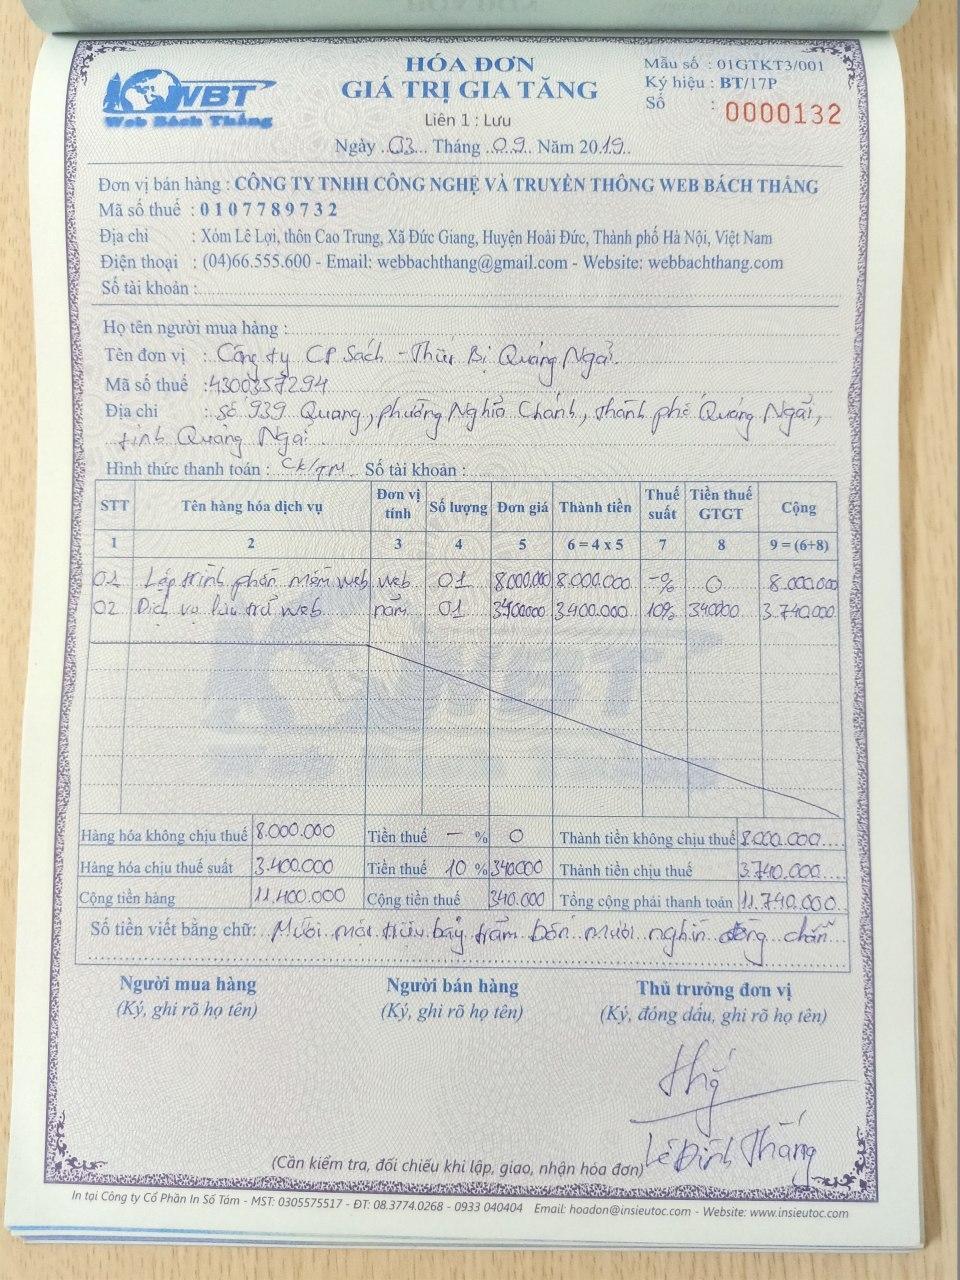 WBT
Web Bách Thắng
HÓA ĐƠN
GIÁ TRỊ GIA TĂNG
Liên 1 : Lưu
Ngày 03 Tháng 09 Năm 2019
Mẫu số : 01GTKT3/001
Ký hiệu : BT/17P
Số : 0000132
Đơn vị bán hàng : CÔNG TY TNHH CÔNG NGHỆ VÀ TRUYỀN THÔNG WEB BÁCH THẮNG
Mã số thuế : 0107789732
Địa chỉ : Xóm Lê Lợi, thôn Cao Trung, Xã Đức Giang, Huyện Hoài Đức, Thành phố Hà Nội, Việt Nam
Điện thoại : (04)66.555.600 - Email: webbachthang@gmail.com - Website: webbachthang.com
Số tài khoản :
Họ tên người mua hàng :
Tên đơn vị : Công ty CP Sách - Thiết Bị Quảng Ngãi
Mã số thuế : 4300357294
Địa chỉ : số 939 Quang, phường Nghĩa Chánh, thành phố Quảng Ngãi,
tỉnh Quảng Ngãi
Hình thức thanh toán : CK/TM Số tài khoản :
STT Tên hàng hóa dịch vụ Đơn vị tính Số lượng Đơn giá Thành tiền Thuế suất Tiền thuế GTGT Cộng
1 2 3 4 5 6 = 4 x 5 7 8 9 = (6+8)
01 Lập trình phần mềm web web 01 8.000.000 8.000.000 -% 0 8.000.000
02 Dịch vụ lưu trữ web năm 01 3400000 3.400.000 10% 340000 3.740.000
Hàng hóa không chịu thuế 8.000.000 Tiền thuế - % 0 Thành tiền không chịu thuế 8.000.000
Hàng hóa chịu thuế suất 3.400.000 Tiền thuế 10 % 340000 Thành tiền chịu thuế 3.740.000
Cộng tiền hàng 11.400.000 Cộng tiền thuế 340.000 Tổng cộng phải thanh toán 11.740.000
Số tiền viết bằng chữ: Mười một triệu bảy trăm bốn mươi nghìn đồng chẵn
Người mua hàng Người bán hàng Thủ trưởng đơn vị
(Ký, ghi rõ họ tên) (Ký, ghi rõ họ tên) (Ký, đóng dấu, ghi rõ họ tên)
Lê Đình Thắng
(Cần kiểm tra, đối chiếu khi lập, giao, nhận hóa đơn)
In tại Công ty Cổ Phần In Số Tám - MST: 0305575517 - ĐT: 08.3774.0268 - 0933 040404 Email: hoadon@insieutoc.com - Website: www.insieutoc.com